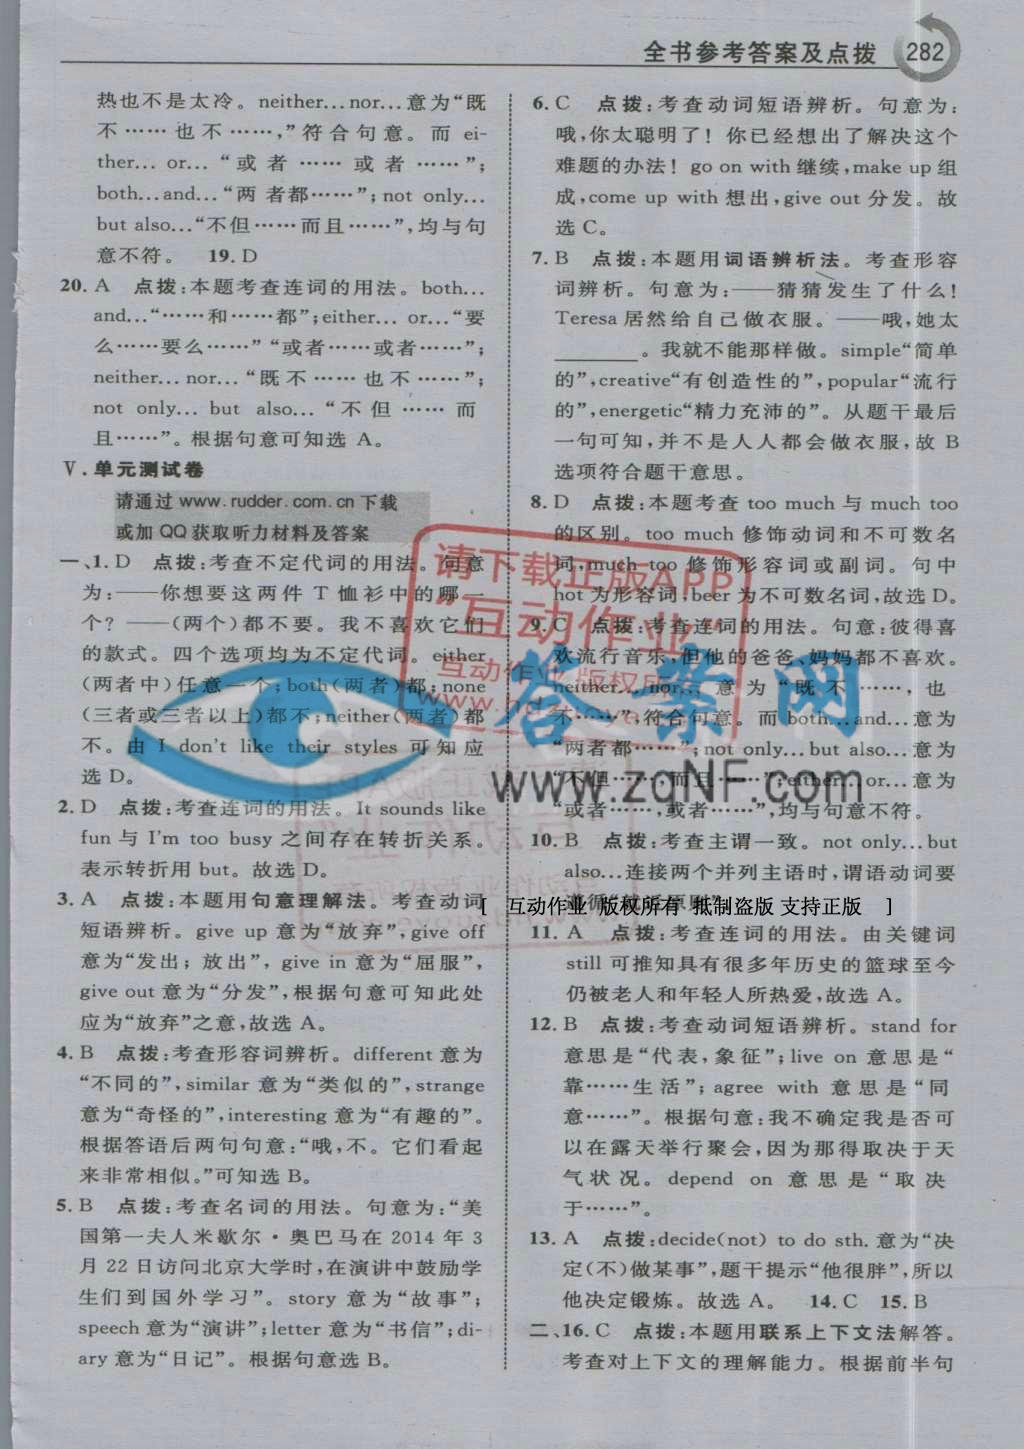 全书参考答案及点拨 282
热也不是太冷。neither…nor…意为“既
不……也不……,”符合句意。而 ei-
ther… or…“或者……或者……”;
both…and…“两者都……”; not only…
but also…“不但……而且……”,均与句
意不符。 19. D
20. A 点拨:本题考查连词的用法。both…
and…“……和……都”;either… or…“要
么……要么……”“或者……或者……”;
neither… nor…“既不……也不……”;
not only… but also…“不但……而
且……”。根据句意可知选 A。
Ⅴ.单元测试卷
请通过 www. rudder. com. cn 下载
或加 QQ 获取听力材料及答案
一、1. D 点拨:考查不定代词的用法。句意
为:——你想要这两件 T 恤衫中的哪一
个? ——(两个)都不要。我不喜欢它们
的款式。四个选项均为不定代词。either
(两者中)任意一个;both(两者)都;none
(三者或三者以上)都不;neither(两者)都
不。由 I don't like their styles 可知应
选 D。
2. D 点拨:考查连词的用法。It sounds like
fun 与 I'm too busy 之间存在转折关系。
表示转折用 but。故选 D。
3. A 点拨:本题用句意理解法。考查动词
短语辨析。give up 意为“放弃”,give off
意为“发出; 放出”, give in 意为“屈服”,
give out 意为“分发”,根据句意可知此处
应为“放弃”之意,故选 A。
4. B 点拨:考查形容词辨析。different 意为
“不同的”, similar 意为“类似的”, strange
意为“奇怪的”, interesting 意为“有趣的”。
根据答语后两句句意:“哦,不。它们看起
来非常相似。”可知选 B。
5. B 点拨:考查名词的用法。句意为:“美
国第一夫人米歇尔·奥巴马在 2014 年 3
月 22 日访问北京大学时,在演讲中鼓励学
生们到国外学习”。story 意为“故事”;
speech 意为“演讲”; letter 意为“书信”; di-
ary 意为“日记”。根据句意选 B。
6. C 点拨:考查动词短语辨析。句意为:
哦,你太聪明了! 你已经想出了解决这个
难题的办法! go on with 继续, make up 组
成, come up with 想出, give out 分发。故
选 C。
7. B 点拨:本题用词语辨析法。考查形容
词辨析。句意为:——猜猜发生了什么!
Teresa 居然给自己做衣服。——哦,她太
________。我就不能那样做。simple“简单
的”, creative“有创造性的”, popular“流行
的”, energetic“精力充沛的”。从题干最后
一句可知,并不是人人都会做衣服,故 B
选项符合题干意思。
8. D 点拨:本题考查 too much 与 much too
的区别。too much 修饰动词和不可数名
词, much too 修饰形容词或副词。句中
hot 为形容词, beer 为不可数名词,故选 D。
9. C 点拨:考查连词的用法。句意:彼得喜
欢流行音乐,但他的爸爸、妈妈都不喜欢。
neither…nor… 意为“既不……,也
不……”,符合句意。而 both…and…意为
“两者都……”; not only…but also…意为
“不但……而且……”;either…or…意为
“或者……,或者……”,均与句意不符。
10. B 点拨:考查主谓一致。not only…but
also…连接两个并列主语时,谓语动词要
遵循就近原则。
11. A 点拨:考查连词的用法。由关键词
still 可推知具有很多年历史的篮球至今
仍被老人和年轻人所热爱,故选 A。
12. B 点拨:考查动词短语辨析。stand for
意思是“代表,象征”; live on 意思是“
靠……生活”; agree with 意思是“同
意……”。根据句意:我不确定我是否可
以在露天举行聚会,因为那得取决于天
气状况。depend on 意思是“取决
于……”。
13. A 点拨:decide(not) to do sth. 意为“决
定(不)做某事”,题干提示“他很胖”,所以
他决定锻炼。故选 A。 14. C 15. B
二、16. C 点拨:本题用联系上下文法解答。
考查对上下文的理解能力。根据前半句
请下载正版APP
“互动作业”
互动作业 版权所有
答案网
www.zqNF.com
[ 互动作业 版权所有 抵制盗版 支持正版 ]